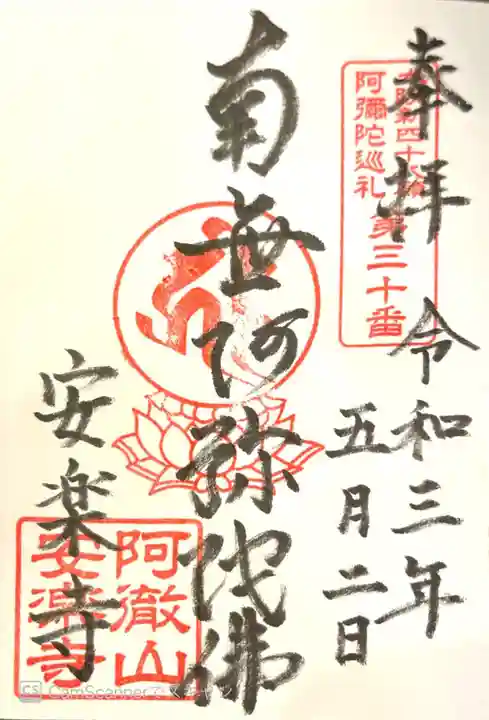 奉拝
令和三年
五月二日
阿彌陀巡礼
第三十番
南無阿弥陀佛
安楽寺
阿徹山
安楽寺
CS CamScanner